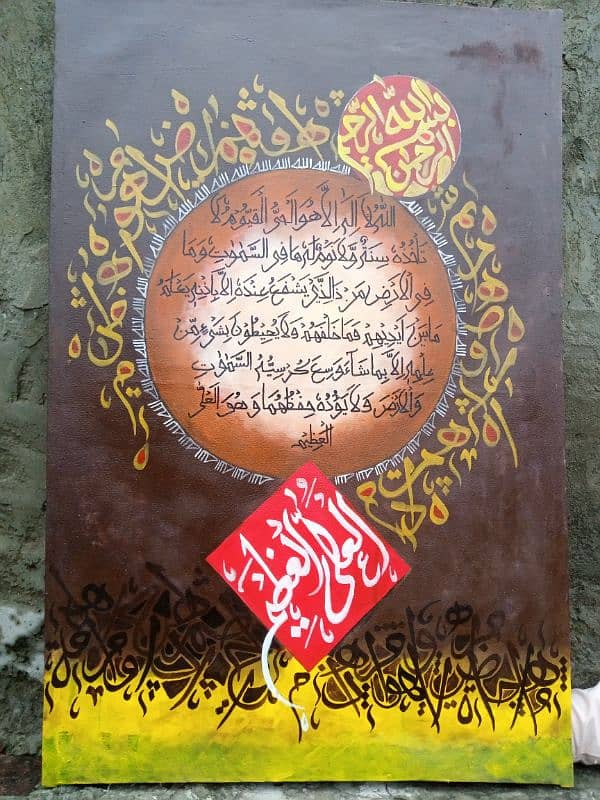 بسم الله الرحمن الرحيم
الله لا اله الا هو الحي القيوم لا
تأخذه سنة ولا نوم له ما في السموت وما
في الارض من ذا الذي يشفع عنده الا باذنه يعلم
ما بين ايديهم وما خلفهم ولا يحيطون بشيء من
علمه الا بما شاء وسع كرسيه السموت
والارض ولا يؤده حفظهما وهو العلي
العظيم
العلي العظيم